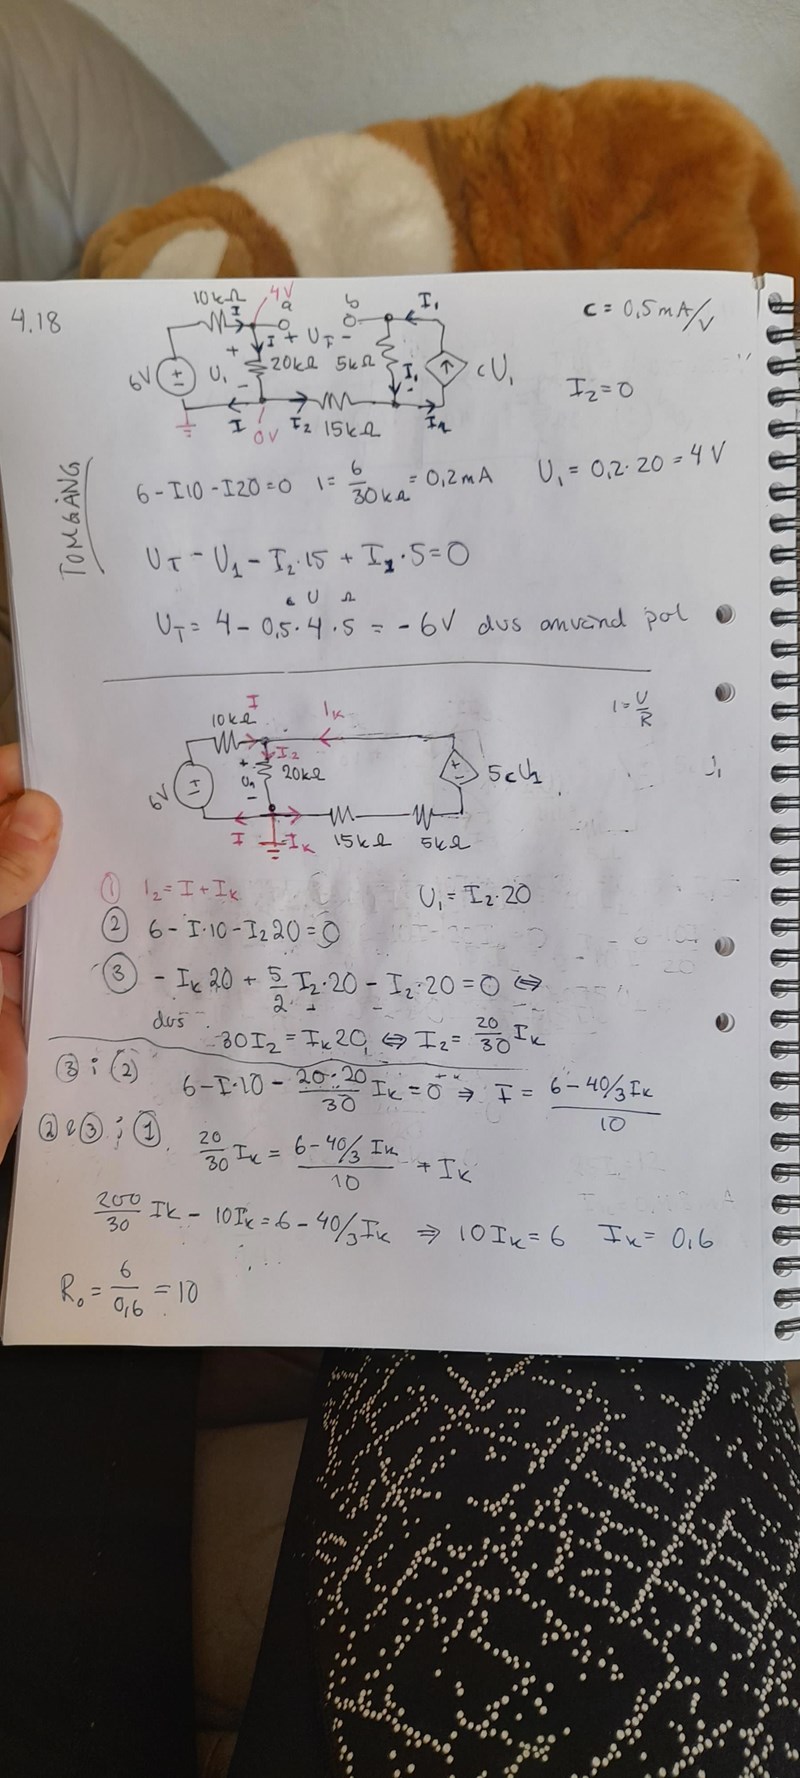 4.18
10kΩ
I
4V
a
b
I₁
c = 0,5 mA/V
+ U_T -
I
6V
+
U₁
-
20kΩ
5kΩ
I₁
cU₁
I₂=0
I
0V
I₂
15kΩ
TOMGÅNG
6-I10-I20=0 I = 6/30kΩ = 0,2mA U₁ = 0,2·20 = 4V
U_T - U₁ - I₂·15 + I₁·5=0
U_T = 4 - 0,5·4·5 = -6V dvs använd pol
I = U/R
10kΩ
I
I_K
I₂
6V
+
U₁
-
20kΩ
+
-
5cU₁
I
I_K
15kΩ
5kΩ
① I₂=I+I_K U₁=I₂·20
② 6-I·10-I₂20=0
③ -I_K20 + 5/2 I₂·20 - I₂·20=0 ⇔
dvs 30I₂=I_K20 ⇔ I₂= 20/30 I_K
③ i (2) 6-I·10 - 20·20/30 I_K=0 ⇒ I = (6-40/3I_K)/10
② & ③ i ① 20/30 I_K = (6-40/3 I_K)/10 + I_K
200/30 I_K - 10I_K=6-40/3I_K ⇒ 10I_K=6 I_K= 0,6
R₀ = 6/0,6 = 10